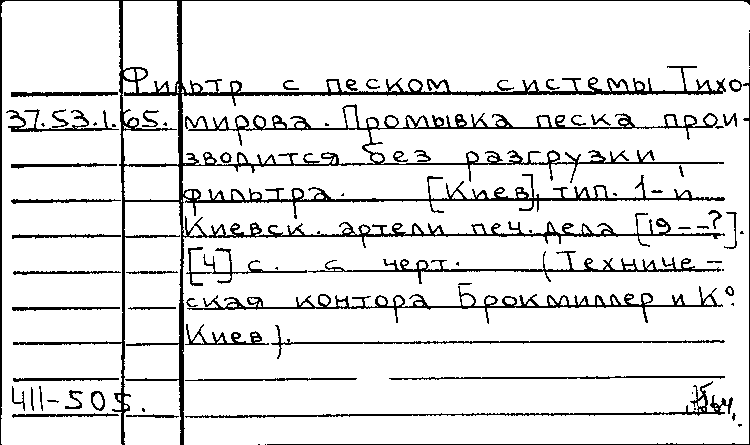 Фильтр с песком системы Тихо-
37.53.1.65. мирова. Промывка песка прои-
зводится без разгрузки
фильтра. [Киев], тип. 1-й
Киевск. артели печ. дела [19--?].
[4] с. с черт. (Техниче-
ская контора Брокмиллер и К°
Киев).
411-505.